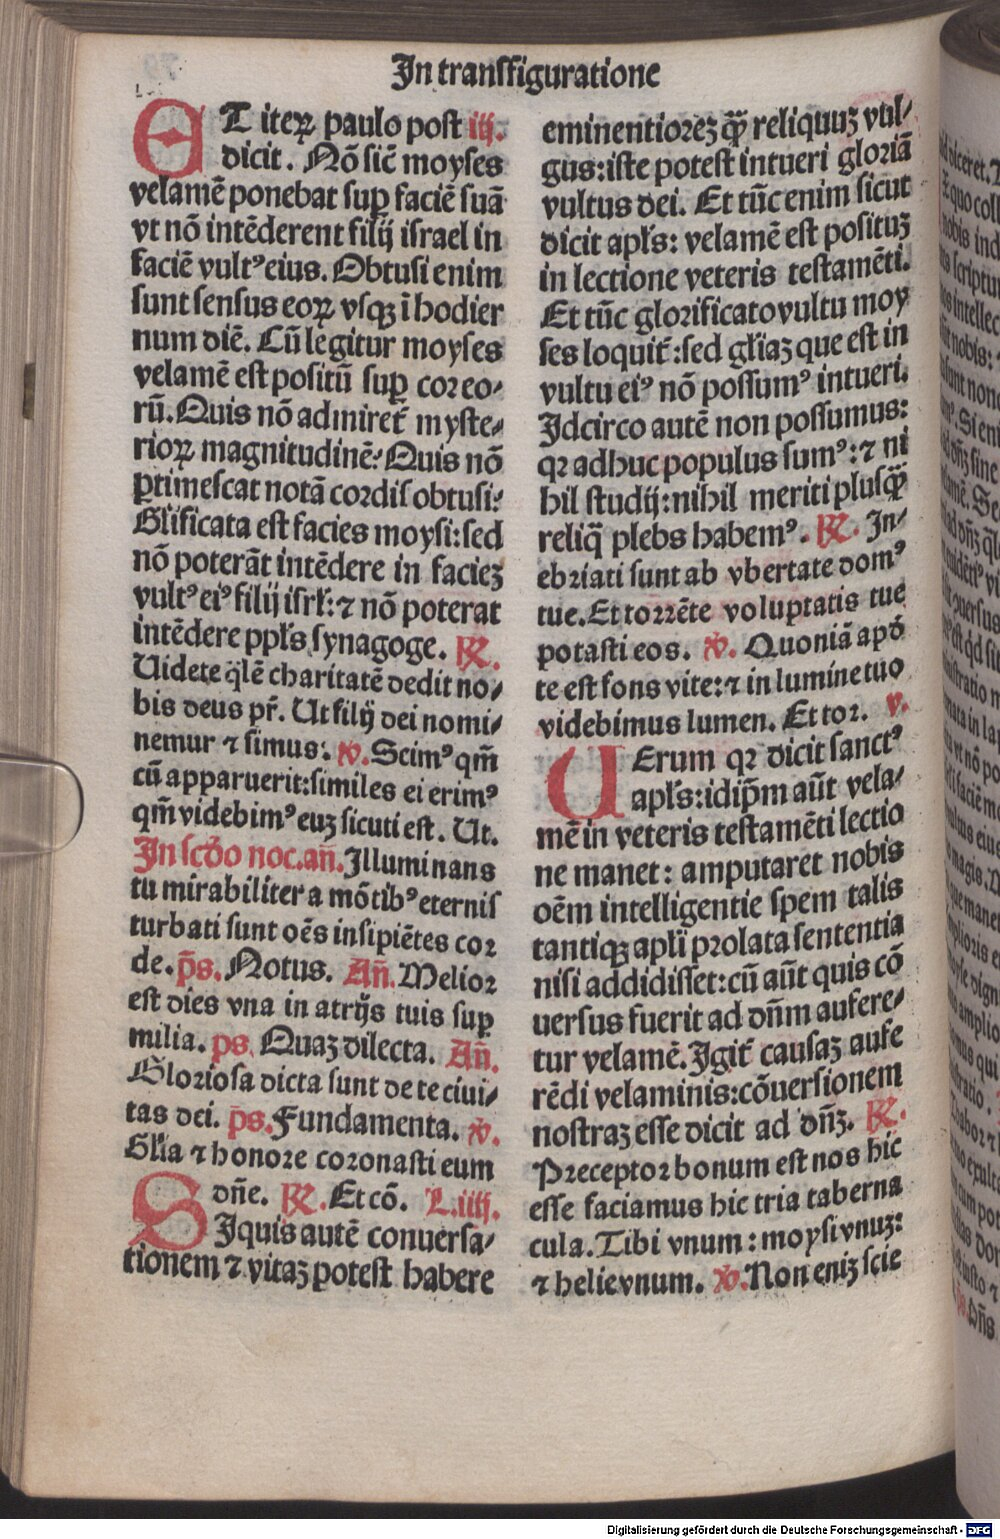 In transfiguratione
ET iteꝝ paulo post iij.
dicit. Nō sic̄ moyses
velamē ponebat sup̱ faciē suā
vt nō intēderent filij israel in
faciē vultꝰ eius. Obtusi enim
sunt sensus eoꝝ vsqꝫ ī hodier
num diē. Cū legitur moyses
velamē est positū sup̱ cor eo⸗
rū. Quis nō admiret̄ myste⸗
rioꝝ magnitudinē: Quis nō
ꝑtimescat notā cordis obtusi:
Glificata est facies moysi: sed
nō poterāt intēdere in facieꝫ
vultꝰ eiꝰ filij isrl̄: ⁊ nō poterat
intēdere ppl̄s synagoge. ℟.
Uidete q̄lē charitatē dedit no⸗
bis deus pr̄. Ut filij dei nomi⸗
nemur ⁊ simus. ℣. Scimꝰ qm̄
cū apparuerit: similes ei erimꝰ
qm̄ videbimꝰ euꝫ sicuti est. Ut.
In scd̄o noc. an̄. Illuminans
tu mirabiliter a mōtibꝰ eternis
turbati sunt oēs insipiētes cor
de. p̄s. Notus. An̄. Melior
est dies vna in atrijs tuis sup̱
milia. ps. Quaꝫ dilecta. An̄.
Gloriosa dicta sunt de te ciui⸗
tas dei. p̄s. Fundamenta. ℣.
Gl̄ia ⁊ honore coronasti eum
dn̄e. ℟. Et cō. L. iiij.
SIquis autē conuersa⸗
tionem ⁊ vitaꝫ potest habere
eminentioreꝫ q̄ꝫ reliquuꝫ vul⸗
gus: iste potest intueri gloriā
vultus dei. Et tūc enim sicut
dicit apl̄s: velamē est posituꝫ
in lectione veteris testamēti.
Et tūc glorificato vultu moy
ses loquit̄: sed gl̄iaꝫ que est in
vultu eiꝰ nō possumꝰ intueri.
Idcirco autē non possumus:
qꝛ adhuc populus sumꝰ: ⁊ ni
hil studij: nihil meriti plusq̄ꝫ
reliq̄ plebs habemꝰ. ℟. In⸗
ebriati sunt ab vbertate domꝰ
tue. Et torrēte voluptatis tue
potasti eos. ℣. Quoniā apd̄
te est fons vite: ⁊ in lumine tuo
videbimus lumen. Et tor. v.
UErum qꝛ dicit sanctꝰ
apl̄s: idip̄m aūt vela⸗
mē in veteris testamēti lectio
ne manet: amputaret nobis
oēm intelligentie spem talis
tantiqꝫ apl̄i prolata sententia
nisi addidisset: cū aūt quis cō
uersus fuerit ad dn̄m aufere⸗
tur velamē. Igit̄ causaꝫ aufe
rēdi velaminis: cōuersionem
nostraꝫ esse dicit ad dn̄ꝫ. ℟.
Preceptor bonum est nos hic
esse faciamus hic tria taberna
cula. Tibi vnum: moysi vnuꝫ:
⁊ helie vnum. ℣. Non eniꝫ scie
Digitalisierung gefördert durch die Deutsche Forschungsgemeinschaft - DFG